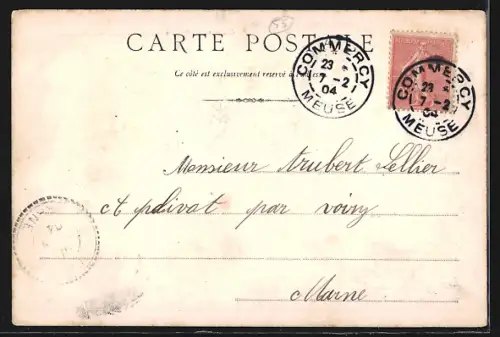 55
CARTE POSTALE
Ce côté est exclusivement réservé à l'adresse
COMMERCY
23
7 - 2
04
MEUSE
COMMERCY
23
7 - 2
04
MEUSE
Monsieur Aubert Lellier
A par Voivy
Marne